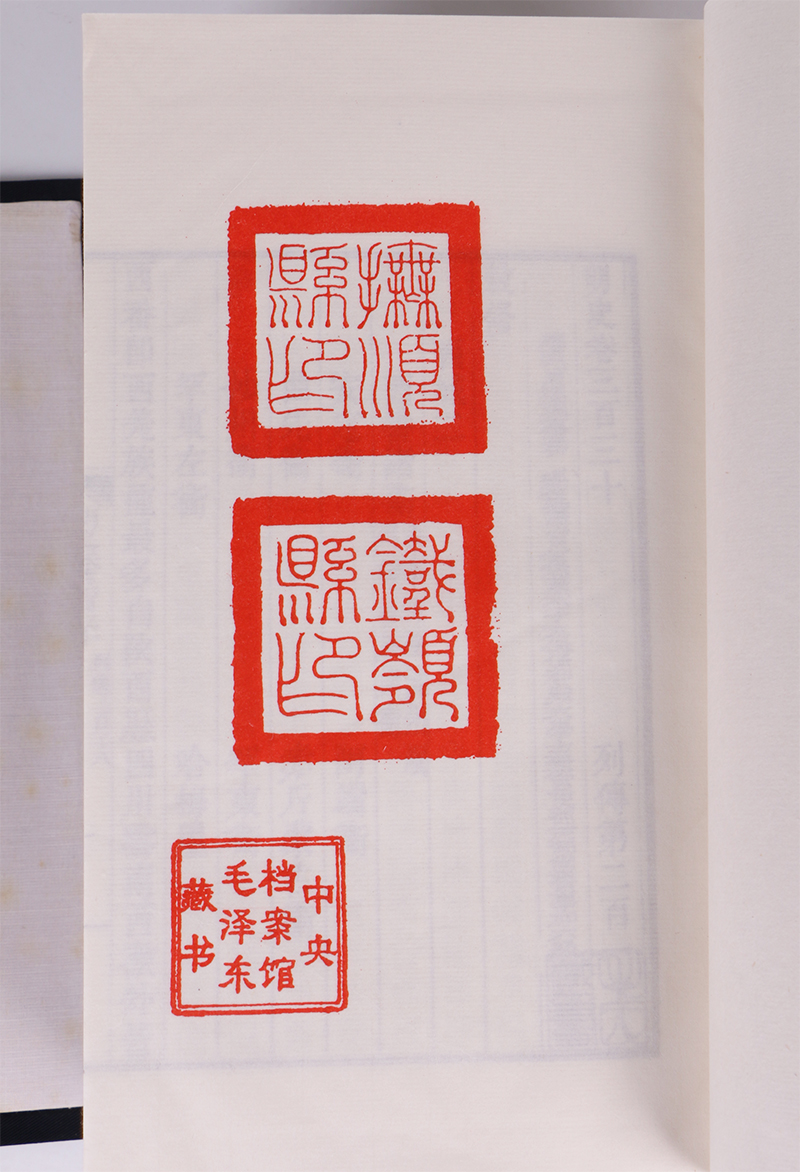 撫順
縣印
鐵嶺
縣印
中央
档案馆
毛泽东
藏书